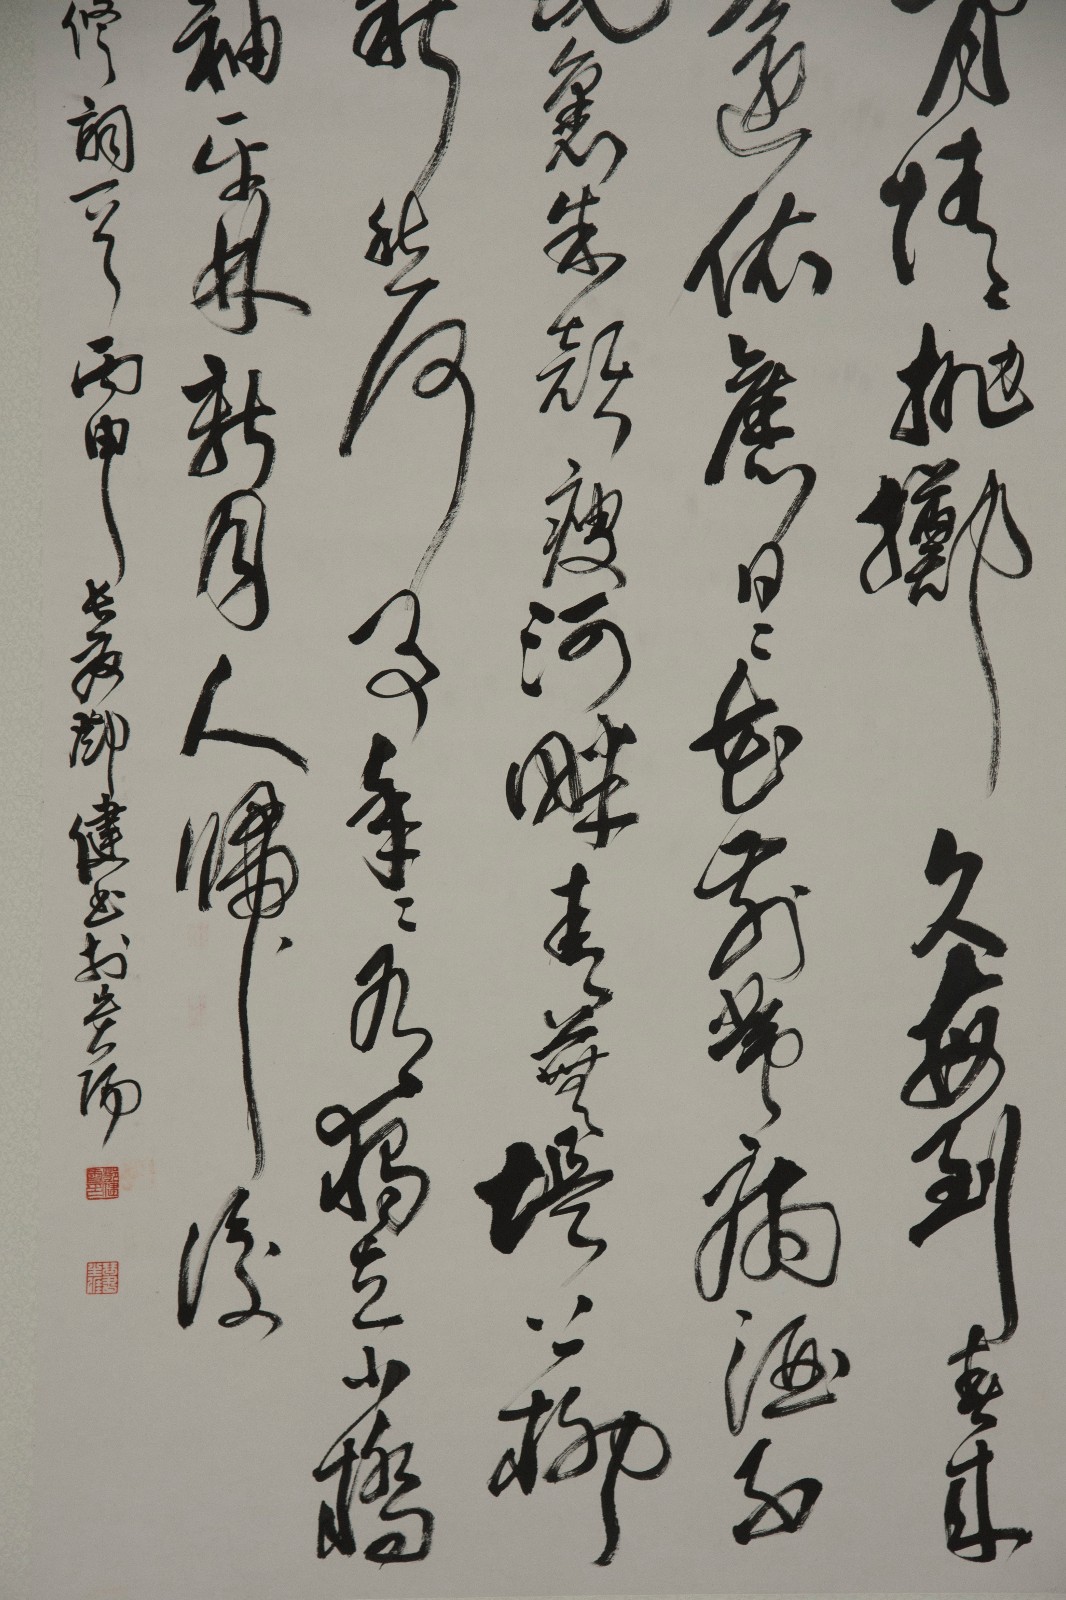 情抛擲久每到春来
還依舊日日花前常病酒不
惜朱顔瘦河畔青蕪堤上柳
新愁何事年年有獨立小橋
袖平林新月人歸後
修詞一首丙申長安鄧健書於貴陽